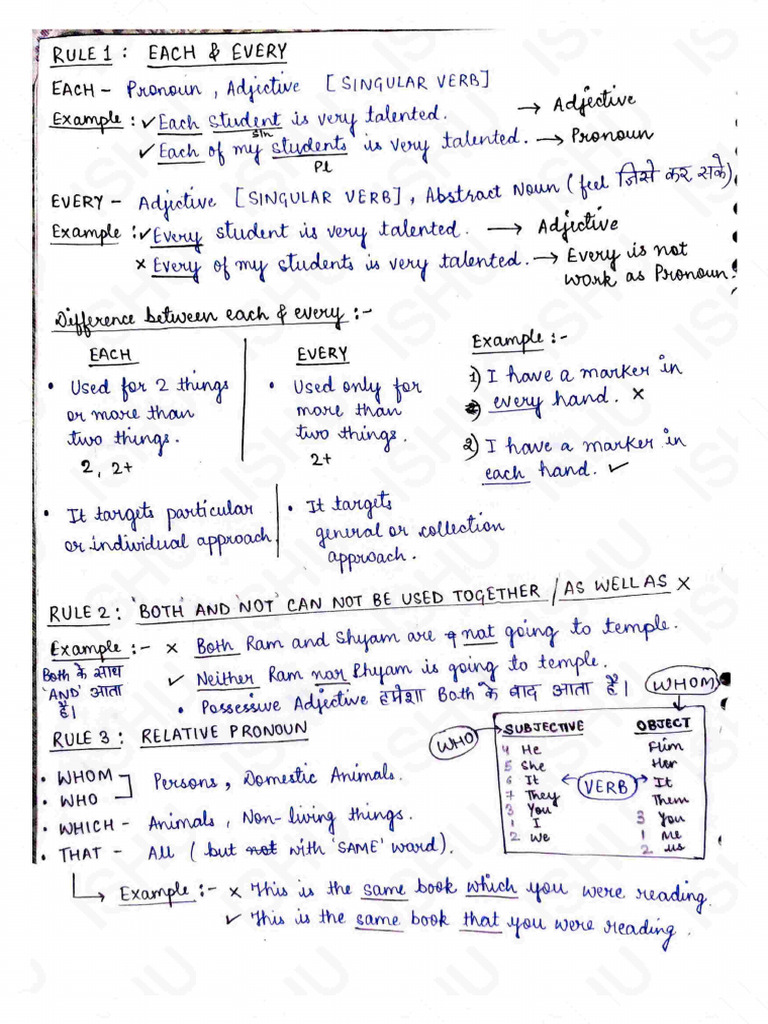 RULE 1 : EACH & EVERY
EACH - Pronoun , Adjective [ SINGULAR VERB]
Example : ✓ Each student is very talented. → Adjective
sin
✓ Each of my students is very talented. → Pronoun
Pl
EVERY - Adjective [SINGULAR VERB] , Abstract Noun ( feel जिसे कर सके)
Example : ✓ Every student is very talented. → Adjective
× Every of my students is very talented. → Every is not
work as Pronoun.
Difference between each & every :-
EACH
• Used for 2 things
or more than
two things.
2, 2+
EVERY
• Used only for
more than
two things.
2+
Example :-
1) I have a marker in
every hand. ×
2) I have a marker in
each hand. ✓
• It targets particular
or individual approach
• It targets
general or collection
approach.
RULE 2 : 'BOTH' AND 'NOT' CAN NOT BE USED TOGETHER / AS WELL AS ×
Example :- × Both Ram and Shyam are not going to temple.
✓ Neither Ram nor Shyam is going to temple.
Both के साथ
'AND' आता
है।
• Possessive Adjective हमेशा Both के बाद आता है।
RULE 3 : RELATIVE PRONOUN
• WHOM
• WHO
Persons , Domestic Animals.
• WHICH - Animals , Non-living things.
• THAT - All ( but not with 'SAME' word).
WHO
WHOM
SUBJECTIVE OBJECT
4 He Him
5 She Her
6 It ← VERB → It
7 They Them
3 You 3 You
1 I 1 Me
2 We 2 us
Example :- × This is the same book which you were reading.
✓ This is the same book that you were reading.
ISHU